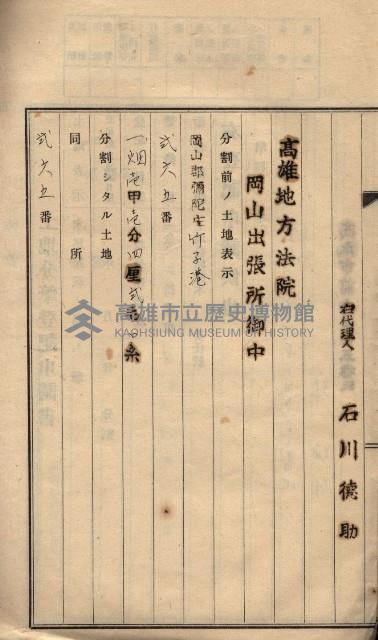 右代理人 石川德助
高雄地方法院
岡山出張所御中
分割前ノ土地表示
岡山郡彌陀庄竹子港
弍六五番
一畑壱甲壱分四厘弍毛
糸
分割シタル土地
同所
弍六五番
高雄市立歷史博物館
KAOHSIUNG MUSEUM OF HISTORY